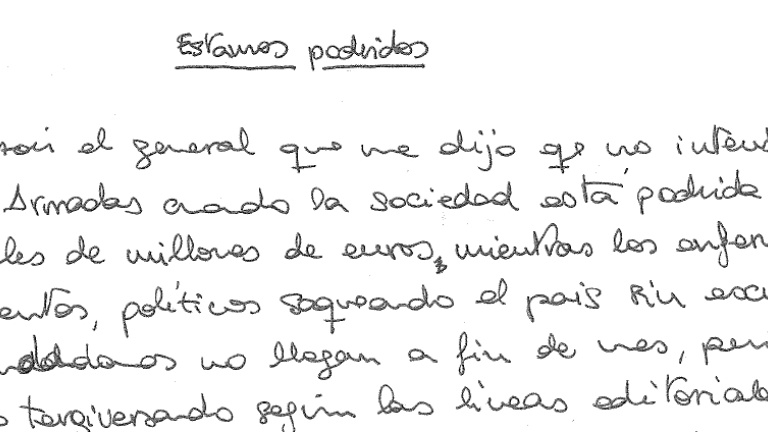 Estamos podridos
el general que me dijo qe no inten
Armadas cuando la sociedad está podrida
les de millones de euros, mientras los enfer
entos, políticos saqueando el país sin exc
no llegan a fin de mes, peri
tergiversando según las líneas editoriale